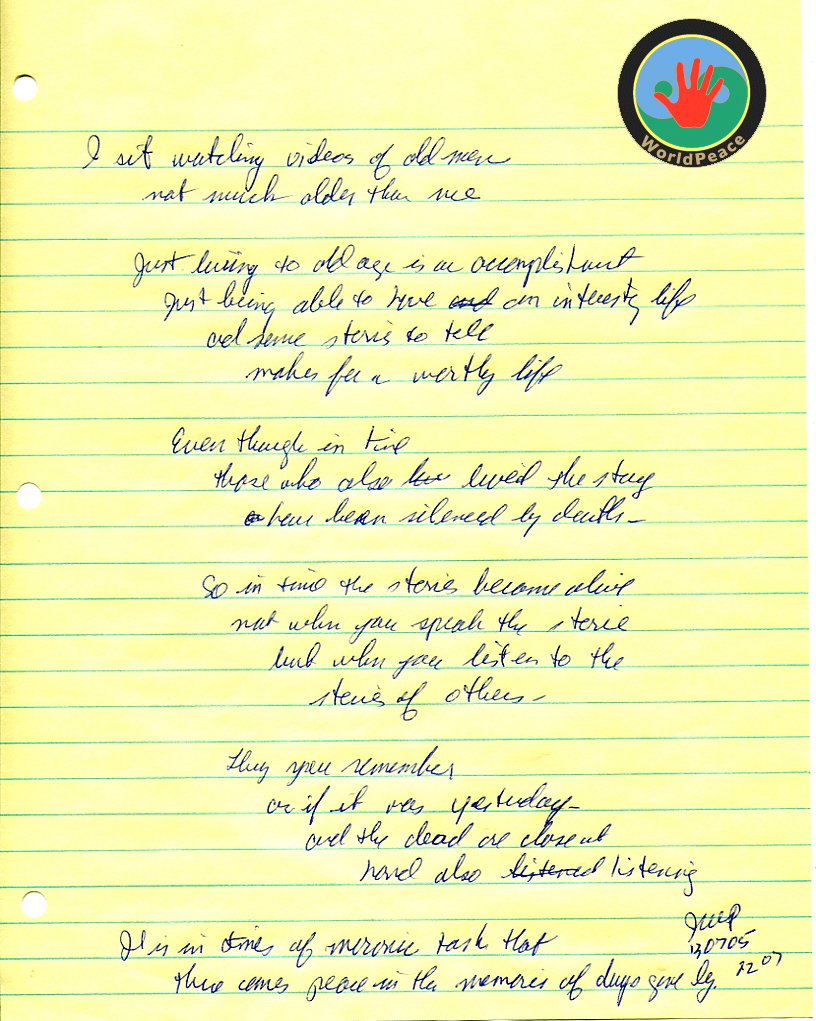 WorldPeace
I sit watching videos of old men
not much older than me
Just living to old age is an accomplishment
Just being able to have and an interesting life
and some stories to tell
makes for a worthy life
Even though in time
those who also lived the story
have been silenced by death-
So in time the stories become alive
not when you speak the stories
but when you listen to the
stories of others-
Then you remember
as if it was yesterday-
and the dead are close at
hand also listened listening
It is in times of task that
there comes peace in the memories of days gone by.
JWP
130705
2207